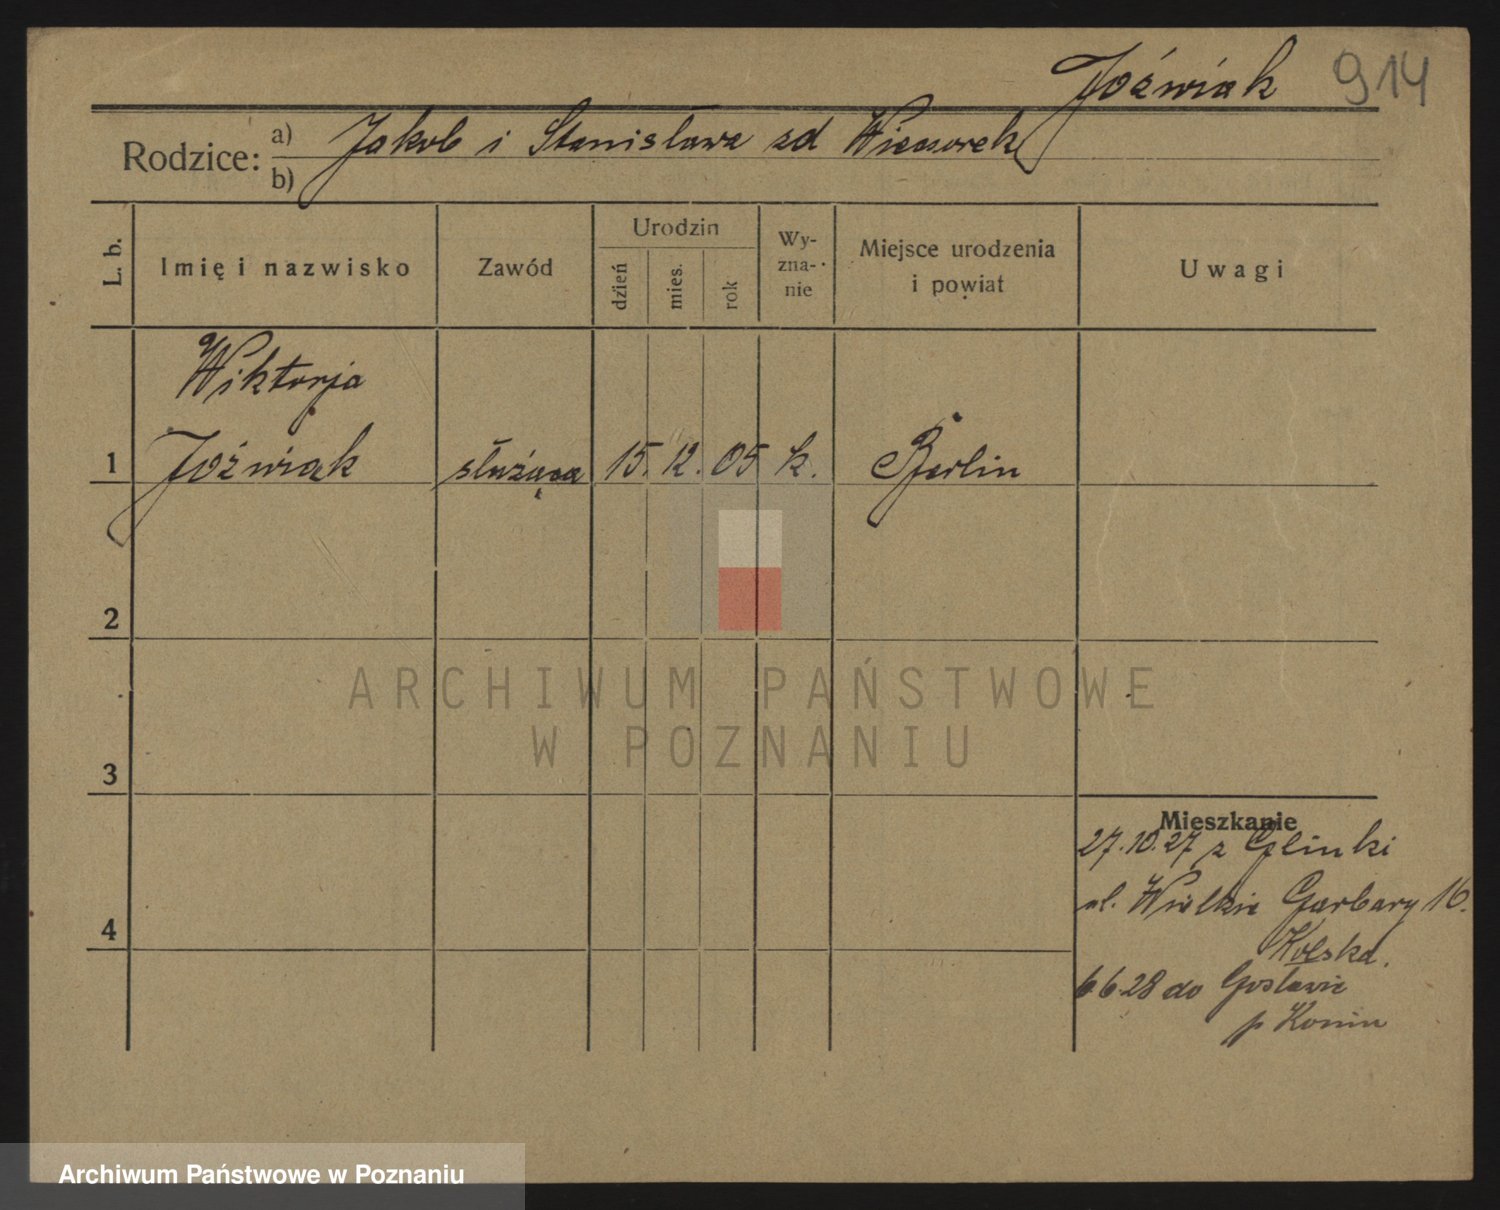 Jóźwiak 914
Rodzice:
a) Jakob i Stanisława zd Wieczorek
b)
L. b.
Imię i nazwisko
Zawód
Urodzin
dzień
mies.
rok
Wy-
zna-
nie
Miejsce urodzenia
i powiat
Uwagi
Wiktorja
1 Jóźwiak służąca 15. 12. 05 k. Berlin
2
ARCHIWUM PAŃSTWOWE
W POZNANIU
3
Mieszkanie
27.10.27 z Glinki
ul. Wielkie Garbary 16.
Kolska.
4
6.6.28 do Gosławic
p Konin
Archiwum Państwowe w Poznaniu